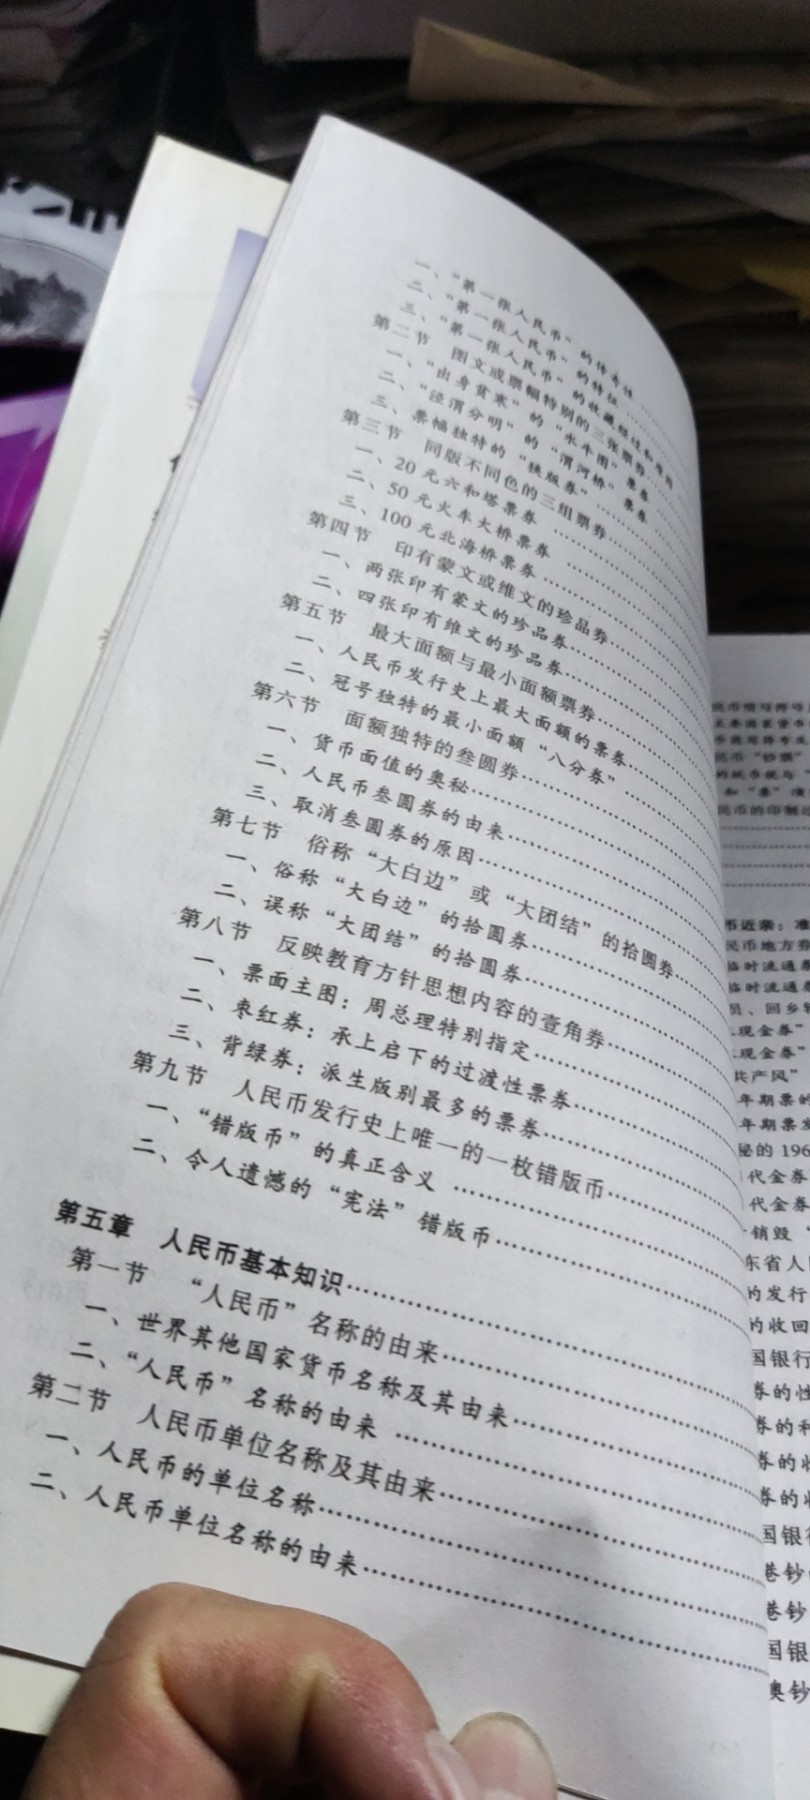 一、“第一张人民币”的传奇性
二、“第一张人民币”的特征
三、“第一张人民币”的收藏经过和原因
第二节 图文或票幅特别的三张票券
一、“出身贫寒”的“水牛图”票券
二、“泾渭分明”的“渭河桥”票券
三、票幅独特的“狭版券”
第三节 同版不同色的三组票券
一、20元六和塔票券
二、50元火车大桥票券
三、100元北海桥票券
第四节 印有蒙文或维文的珍品券
一、两张印有蒙文的珍品券
二、四张印有维文的珍品券
第五节 最大面额与最小面额票券
一、人民币发行史上最大面额的票券
二、冠号独特的最小面额“八分券”
第六节 面额独特的叁圆券
一、货币面值的奥秘
二、人民币叁圆券的由来
三、取消叁圆券的原因
第七节 俗称“大白边”或“大团结”的拾圆券
一、俗称“大白边”的拾圆券
二、误称“大团结”的拾圆券
第八节 反映教育方针思想内容的壹角券
一、票面主图：周总理特别指定
二、枣红券：承上启下的过渡性票券
三、背绿券：派生版别最多的票券
第九节 人民币发行史上唯一的一枚错版币
一、“错版币”的真正含义
二、令人遗憾的“宪法”错版币
第五章 人民币基本知识
第一节 “人民币”名称的由来
一、世界其他国家货币名称及其由来
二、“人民币”名称的由来
第二节 人民币单位名称及其由来
一、人民币的单位名称
二、人民币单位名称的由来
民币“钞票”
民币的印制
币近亲：准
民币地方券
临时流通券
临时流通券
员、回乡
现金券”
现金券”
共产风”
年期票的
年期票发
秘的196
代金券
代金券
销毁“
东省人
的发行
的收回
国银行
券的性
券的种
券的
券的
国银行
港钞
港钞
国银
奥钞